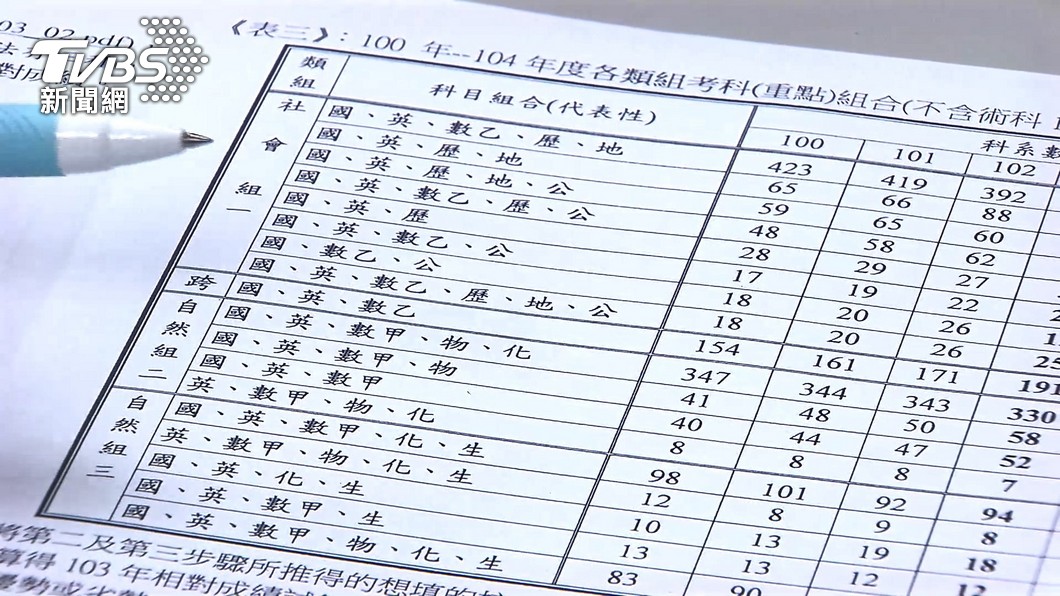 TVBS
新聞網
03_02.pdf)
《表三》：100 年--104 年度各類組考科(重點)組合(不含術科
類組 科目組合(代表性) 科系數
100 101 102
社會組一
國、英、數乙、歷、地 423 419 392
國、英、歷、地 65 66 88
國、英、歷、地、公 59 65 60
國、英、數乙、歷、公 48 58 62
國、英、歷 28 29 27
國、英、數乙、公 17 19 22
國、數乙、公 18 20 26
國、英、數乙、歷、地、公 18 20 26
跨 國、英、數乙 154 161 171 191
自然組二
國、英、數甲、物、化 347 344 343 330
國、英、數甲、物 41 48 50 58
國、英、數甲 40 44 47 52
英、數甲、物、化 8 8 8 7
自然組三
國、英、數甲、化、生 98 101 92 94
英、數甲、物、化、生 12 8 9 8
國、英、化、生 10 13 19 18
國、英、數甲、生 13 13 12 12
國、英、數甲、物、化、生 83 90
將第二及第三步驟所推得的想填的
算得 103 年相對成績